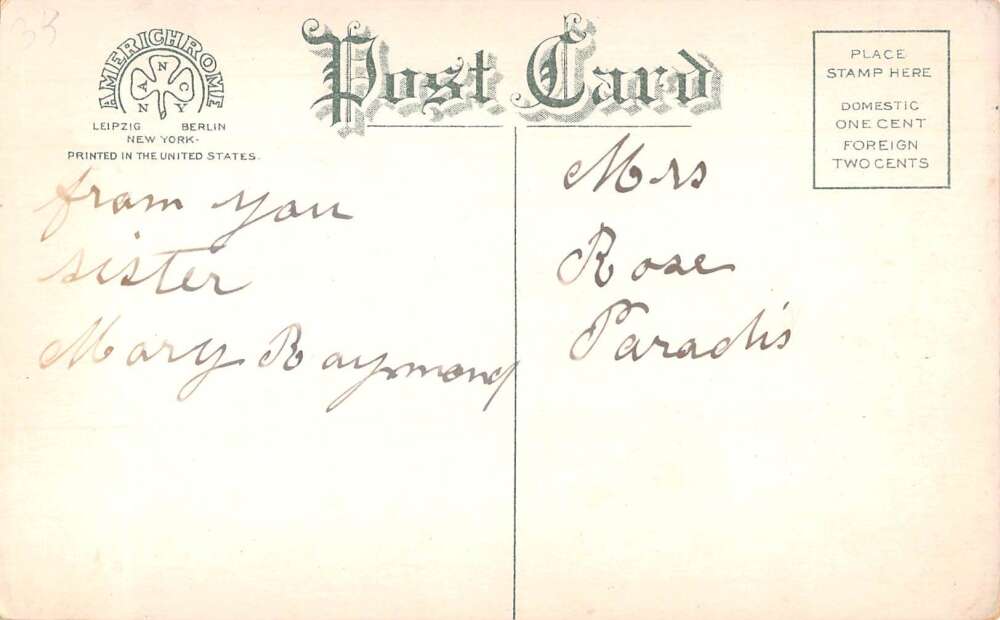 33
AMERICHROME
N
A C
N Y
LEIPZIG BERLIN
NEW YORK-
PRINTED IN THE UNITED STATES.
Post Card
PLACE
STAMP HERE
DOMESTIC
ONE CENT
FOREIGN
TWO CENTS
from you
sister
Mary Raymond
Mrs
Rose
Paradis